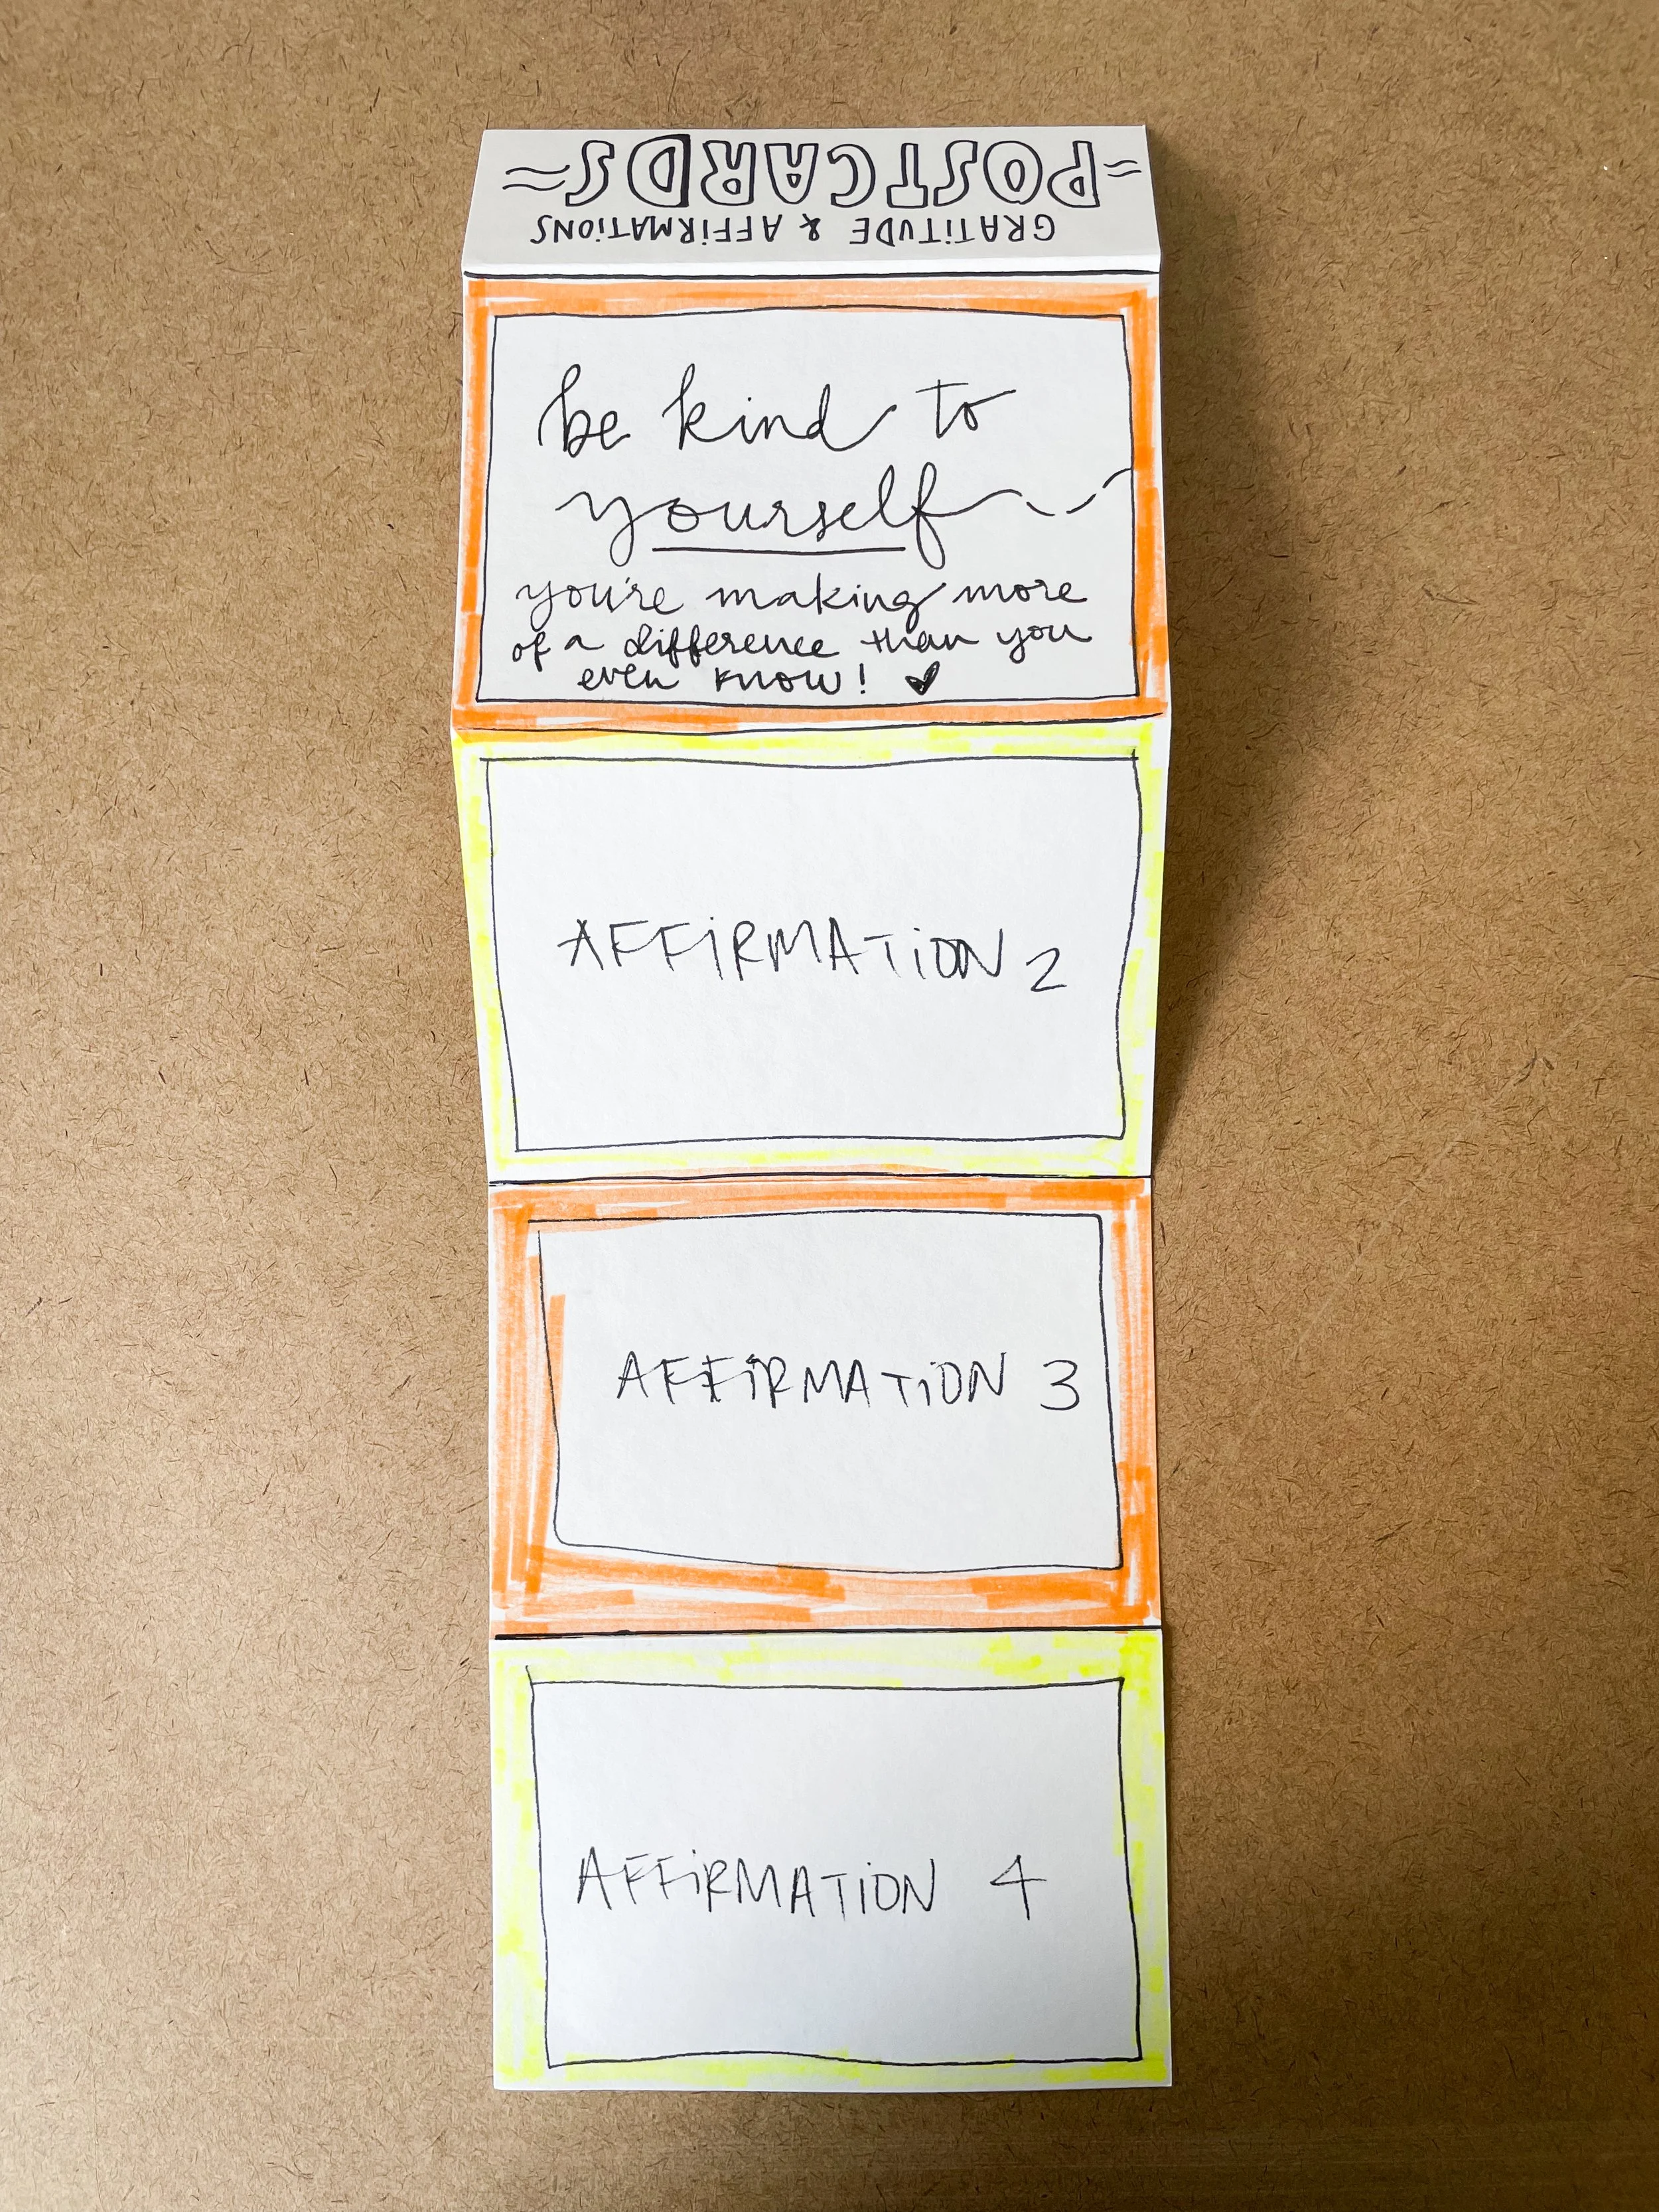 GRATiTUDE & AFFiRMATiONS
POSTCARDS
be kind to
yourself
you're making more
of a difference than you
even know!
AFFiRMATiON 2
AFFiRMATiON 3
AFFiRMATiON 4